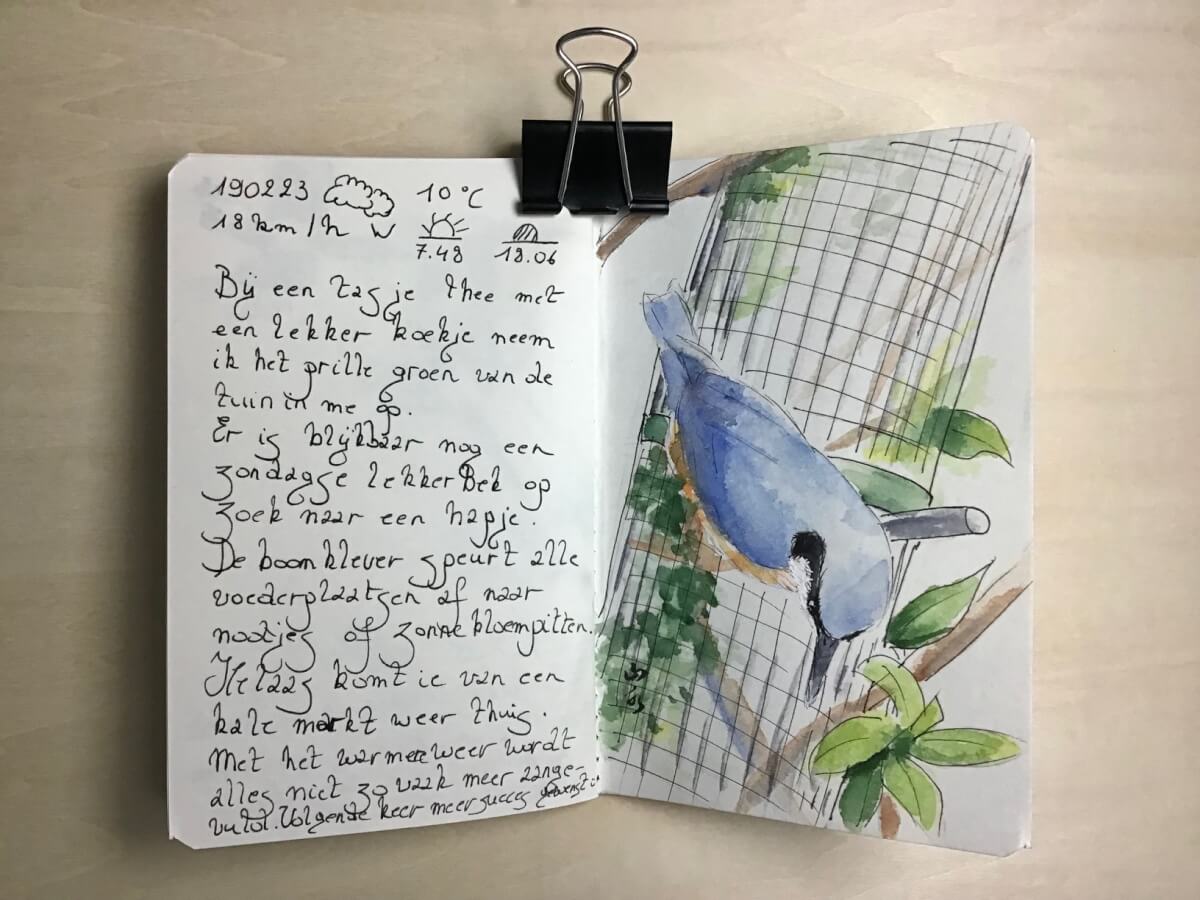 190223 10 °C
18 km/h W
7.48 18.06
Bij een tasje thee met
een lekker koekje neem
ik het prille groen van de
tuin in me op.
Er is blijkbaar nog een
zondagse lekkerBek op
zoek naar een hapje.
De boomklever speurt alle
voederplaatsen af naar
nootjes of zonnebloempitten.
Helaas komt ie van een
kale markt weer thuis.
Met het warmere weer wordt
alles niet zo vaak meer aange-
vuld. Volgende keer meer succes gewenst